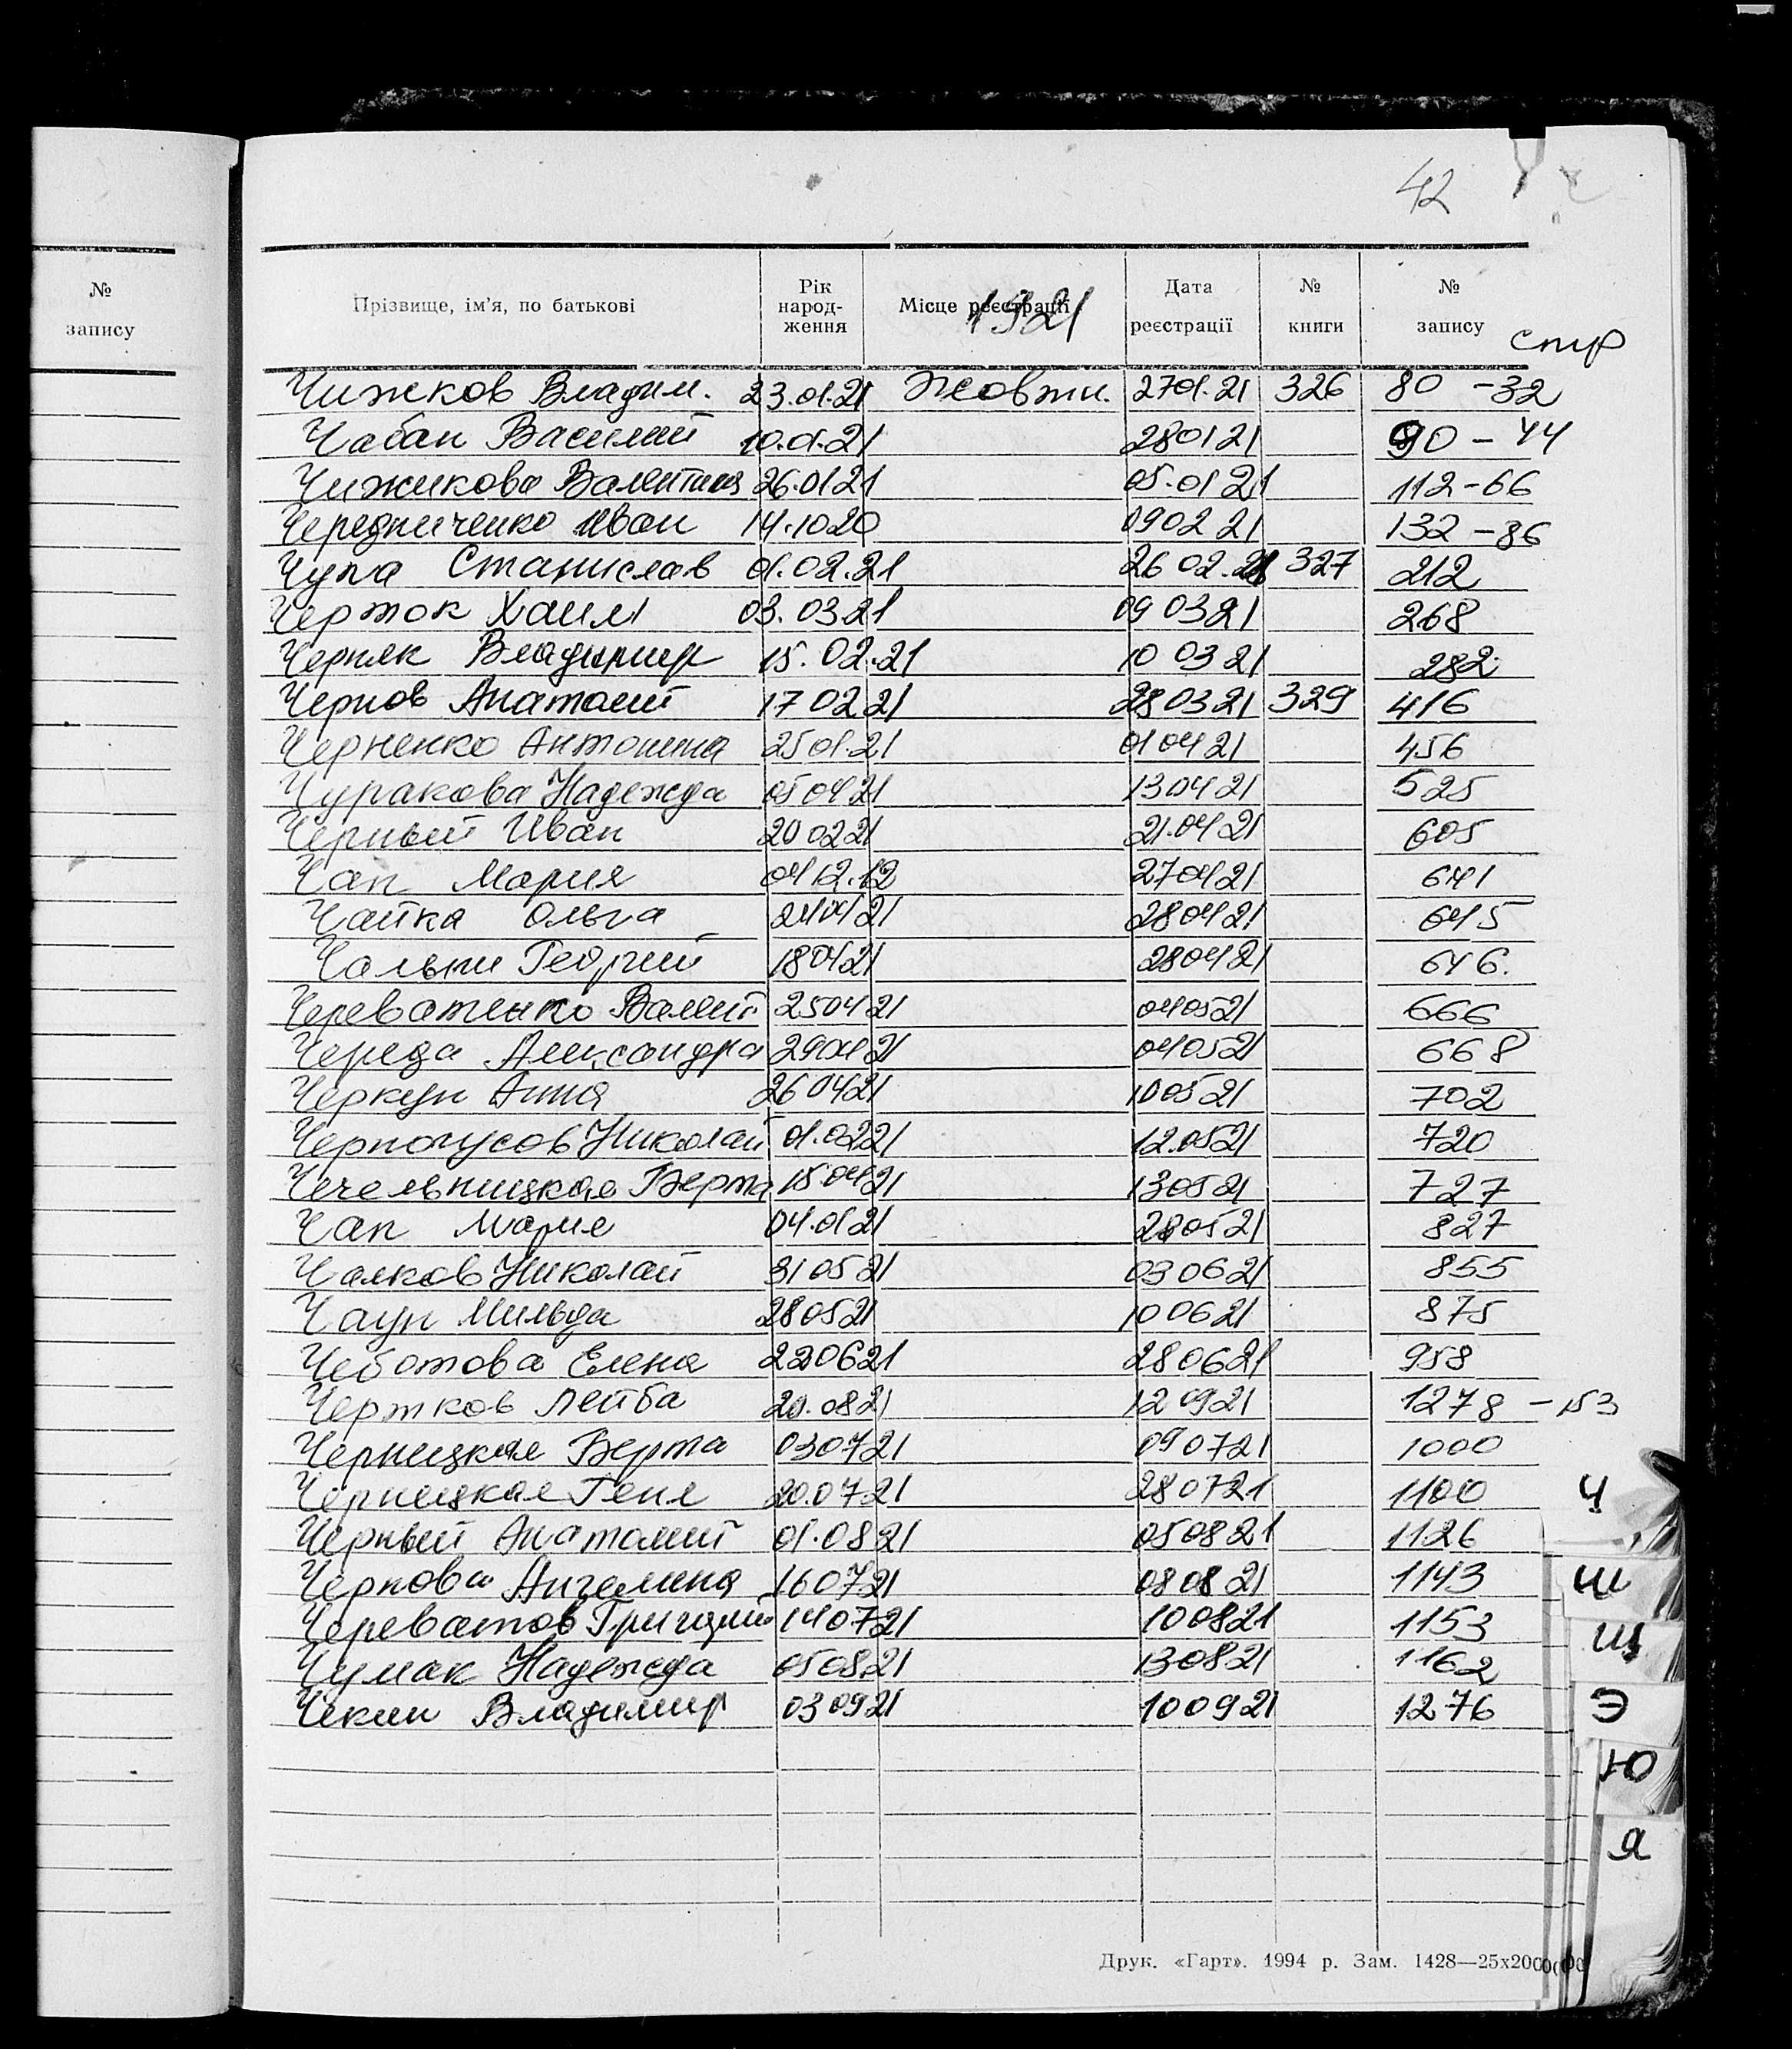 42
№
запису
Прізвище, ім'я, по батькові Рік народ-ження Місце реєстрації Дата реєстрації № книги № запису
1921
стр
Чижков Владим. 23.01.21 Жовтн. 2701.21 326 80 - 32
Чабан Василий 10.01.21 280121 90 - 44
Чижикова Валентина 26.0121 05.0121 112 - 66
Чередниченко Иван 14.1020 0902 21 132 - 86
Чупа Станислав 01.02.21 26 02.21 327 212
Черток Хаим 03.03.21 09 0321 268
Черняк Владимир 15.02.21 10 0321 282
Чернов Анатолий 17 0221 280321 329 416
Черненко Антонина 2501.21 010421 456
Чуракова Надежда 050421 130421 525
Черный Иван 200221 21.0421 605
Чап Мария 0412.12 270421 641
Чайка Ольга 240421 280421 645
Чальни Георгий 180421 280421 646.
Череватенко Валент. 250421 040521 666
Череда Александра 290421 040521 668
Черкун Анна 260421 100521 702
Черноусов Николай 01.0221 12.0521 720
Чечельницкая Берта 15.0421 130521 727
Чап Мария 04.0121 280521 827
Чалков Николай 310521 030621 855
Чаун Мильда 280521 100621 875
Чеботова Елена 220621 280621 958
Чертков Лейба 20.0821 120921 1278 - 153
Черницкая Берта 030721 090721 1000
Черницкая Геня 20.07.21 280721 1100
Черный Анатолий 01.0821 050821 1126
Чернова Ангелина 160721 080821 1143
Череватов Григорий 140721 100821 1153
Чумак Надежда 050821 130821 1162
Чекин Владимир 030921 100921 1276
Ч
Ш
Щ
Э
Ю
Я
Друк. «Гарт». 1994 р. Зам. 1428—25х2000